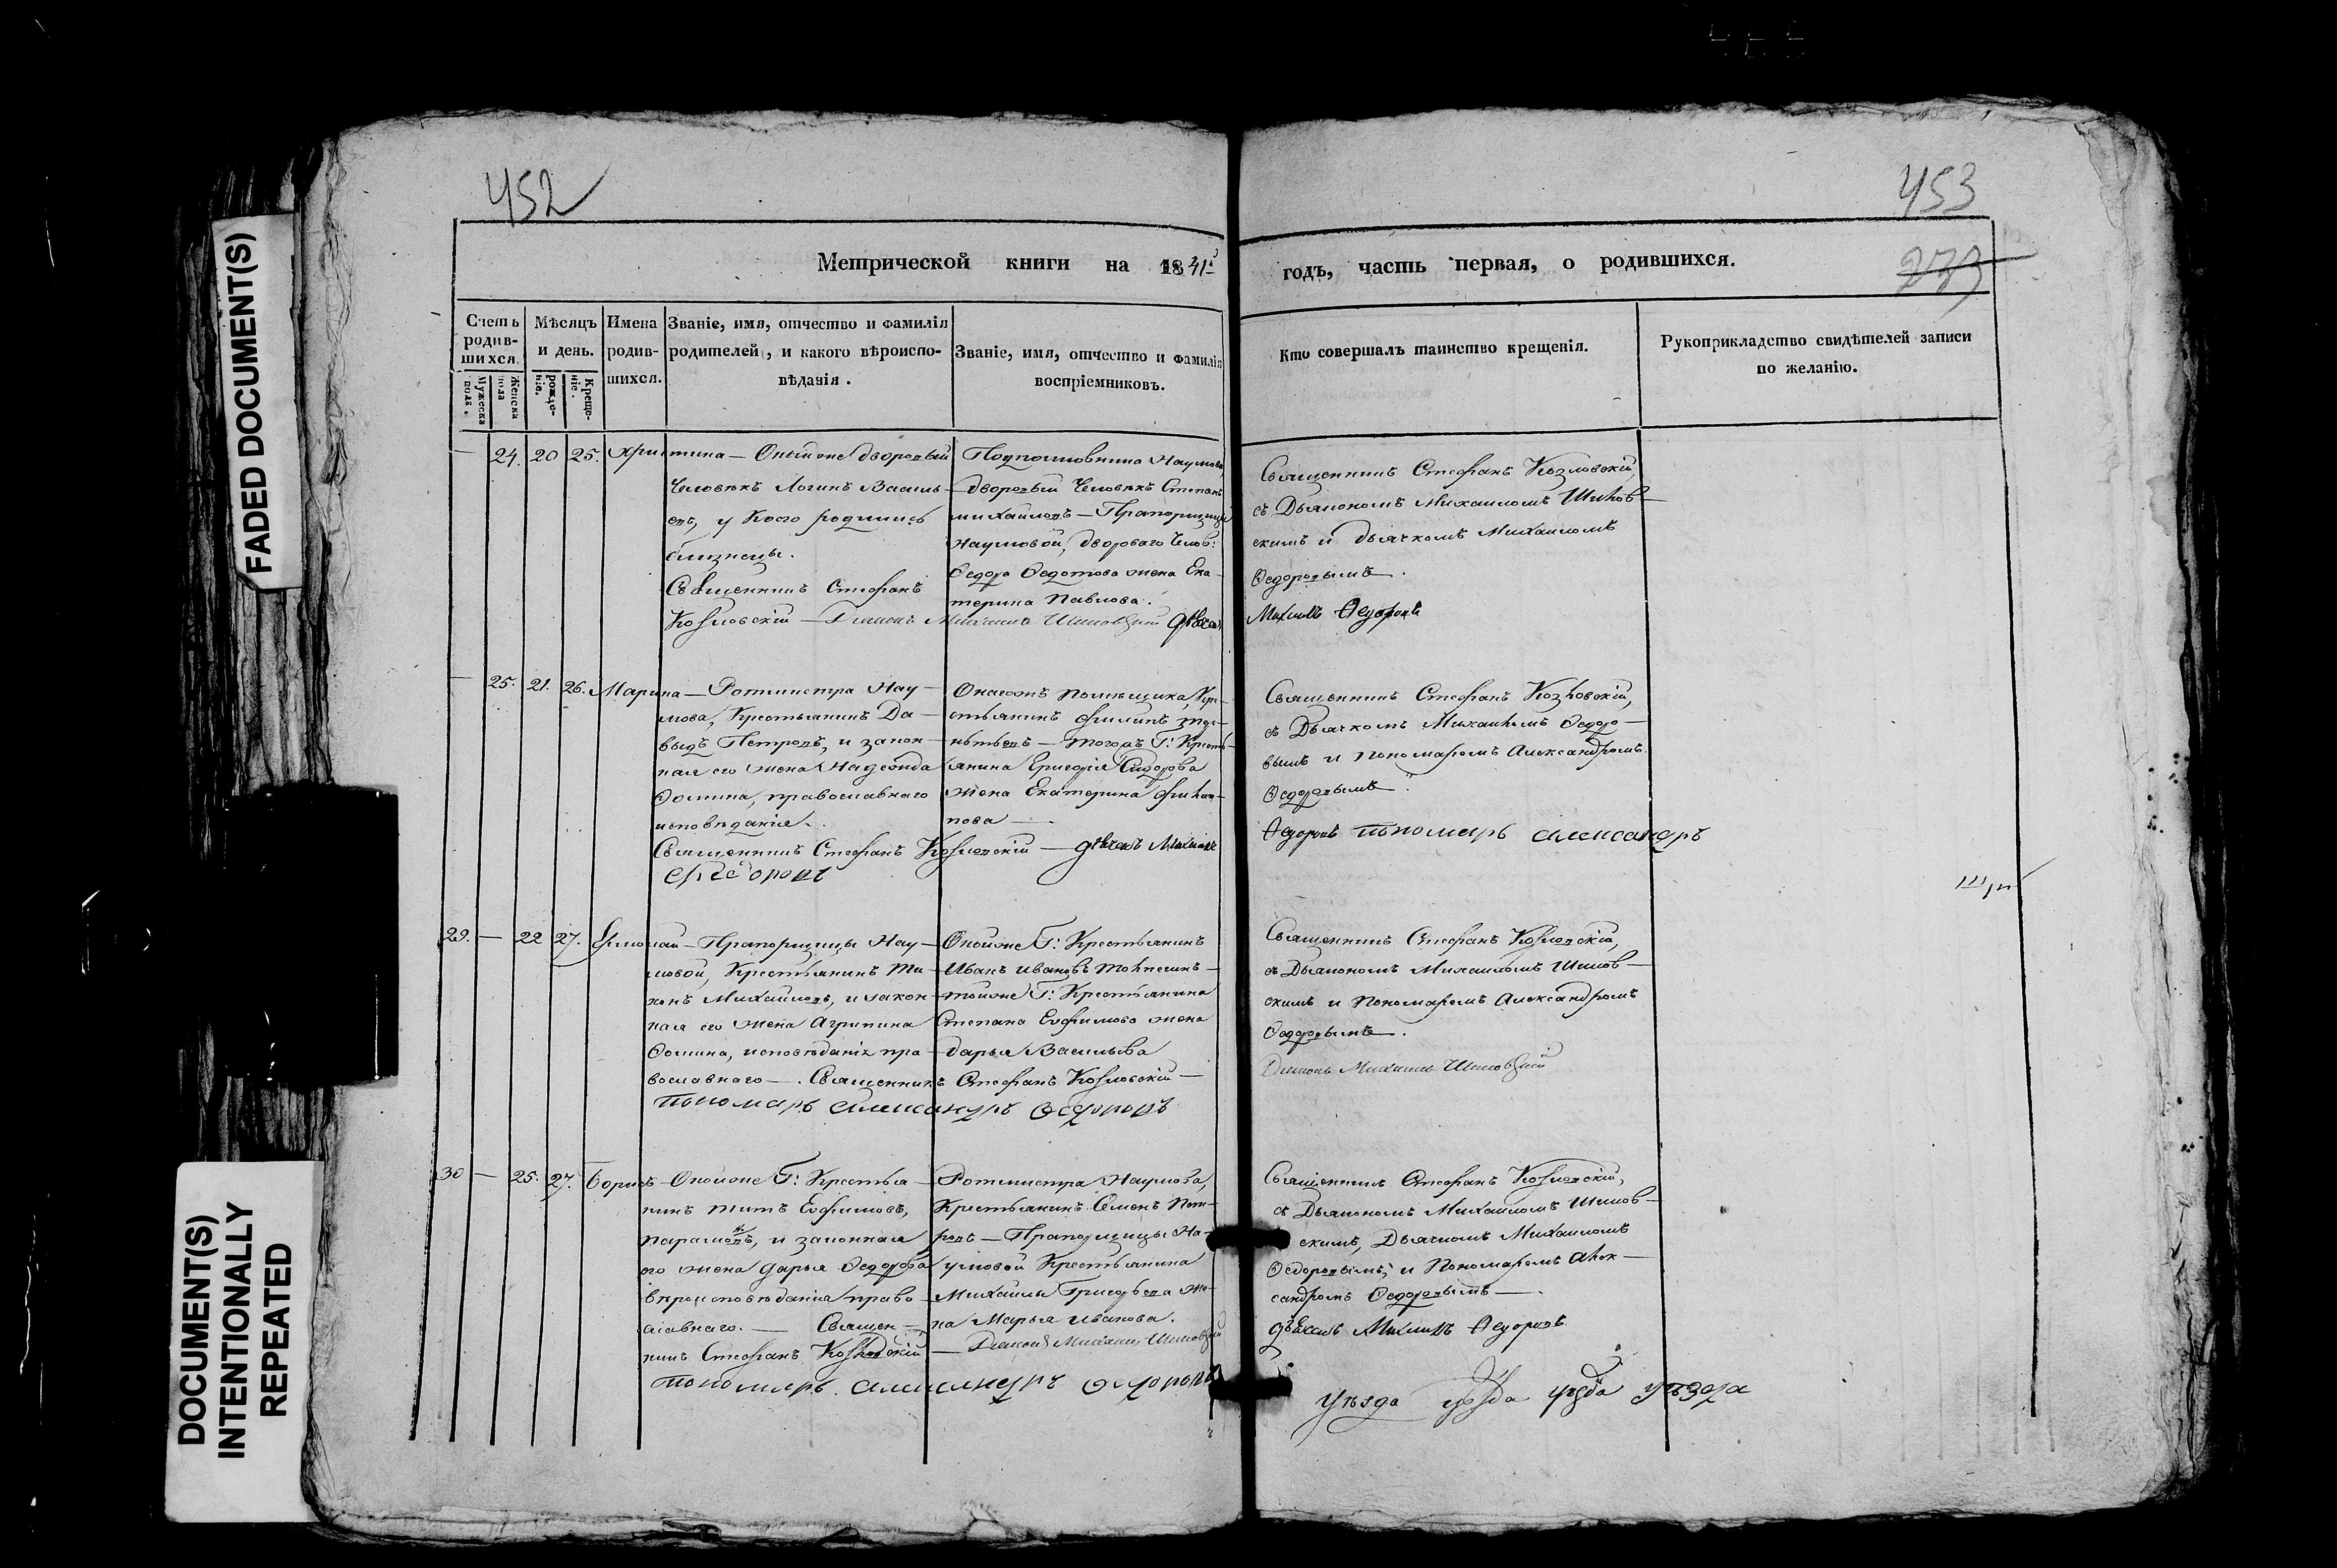 452
453
Метрической книги на 1841й
годъ, часть первая, о родившихся.
Счетъ родив-шихся.
Мужеска полъ.
Женска пола
Мѣсяцъ и день.
рожде-ніе.
Креще-ніе.
Имена родив-шихся.
Званіе, имя, отчество и фамилія родителей, и какого вѣроиспо-вѣданія.
Званіе, имя, отчество и фамилія воспріемниковъ.
Кто совершалъ таинство крещенія.
Рукоприкладство свидѣтелей записи по желанію.
— 24. 20 25. Христина —
дворовый
Человѣкъ Логинъ Василь-
евъ, у Коего родились
близнецы.
Священникъ Стефанъ
Козловскій —
Подполковника Наумова,
дворовый Человѣкъ Степанъ
Михайловъ — Прапорщицы
Наумовой, двороваго Челов:
Ѳедора Ѳедотова жена Ека-
терина Павлова.
Священникъ Стефанъ Козловскій,
съ Дьякономъ Михаиломъ Шинов-
скимъ и дьячкомъ Михаиломъ
Ѳедоровымъ.
Михаилъ Ѳедоровъ
— 25. 21. 26. Марина — Ротмистра Нау-
мова, Крестьянинъ Да-
выдъ Петровъ, и закон-
ная его жена Надежда
Ѳомина, православнаго
исповѣданія.
Священникъ Стефанъ Козловскій — дьячекъ Михаилъ
Ѳедоровъ
помѣщика, Кре-
стьянинъ Филипъ
— тогожъ Г: Кресть-
янина Григорія Сидорова
жена Екатерина Филип-
пова —.
Священникъ Стефанъ Козловскій,
съ Дьячкомъ Михаиломъ Ѳедоро-
вымъ и Пономаремъ Александромъ
Ѳедоровымъ.
Ѳедоровъ пономарь Александръ
29. — 22 27. Ермолай — Прапорщицы Нау-
мовой, Крестьянинъ Ти-
хонъ Михайловъ, и закон-
ная его жена Агрипина
Ѳомина, исповѣданія пра-
вославнаго —. Священникъ Стефанъ Козловскій —
пономарь Александръ Ѳедоровъ
Г: Крестьянинъ
Иванъ Ивановъ
тойже Г: Крестьянина
Степана Евфимова жена
Дарья Васильева
Священникъ Стефанъ Козловскій,
съ Дьякономъ Михаиломъ Шинов-
скимъ и Пономаремъ Александромъ
Ѳедоровымъ.
Дьяконъ Михаилъ Шиновскій
30 — 25. 27. Борисъ — Г: Крестья-
нинъ Титъ Евфимовъ,
и законная
его жена Дарья Ѳедорова
вѣроисповѣданія право-
славнаго. — Священ-
никъ Стефанъ Козловскій — Дьяконъ Михаилъ Шиновскій
пономарь Александръ Ѳедоровъ
Ротмистра Наумова,
Крестьянинъ Семенъ Пет-
ровъ — Прапорщицы На-
умовой Крестьянина
Михаилы Григорьева же-
на Марья Иванова.
Священникъ Стефанъ Козловскій,
съ Дьякономъ Михаиломъ Шинов-
скимъ, Дьячкомъ Михаиломъ
Ѳедоровымъ, и Пономаремъ Алек-
сандромъ Ѳедоровымъ —.
дьячекъ Михаилъ Ѳедоровъ
Уѣзда уѣзда уѣзда уѣзда
FADED DOCUMENT(S)
DOCUMENT(S)
INTENTIONALLY
REPEATED